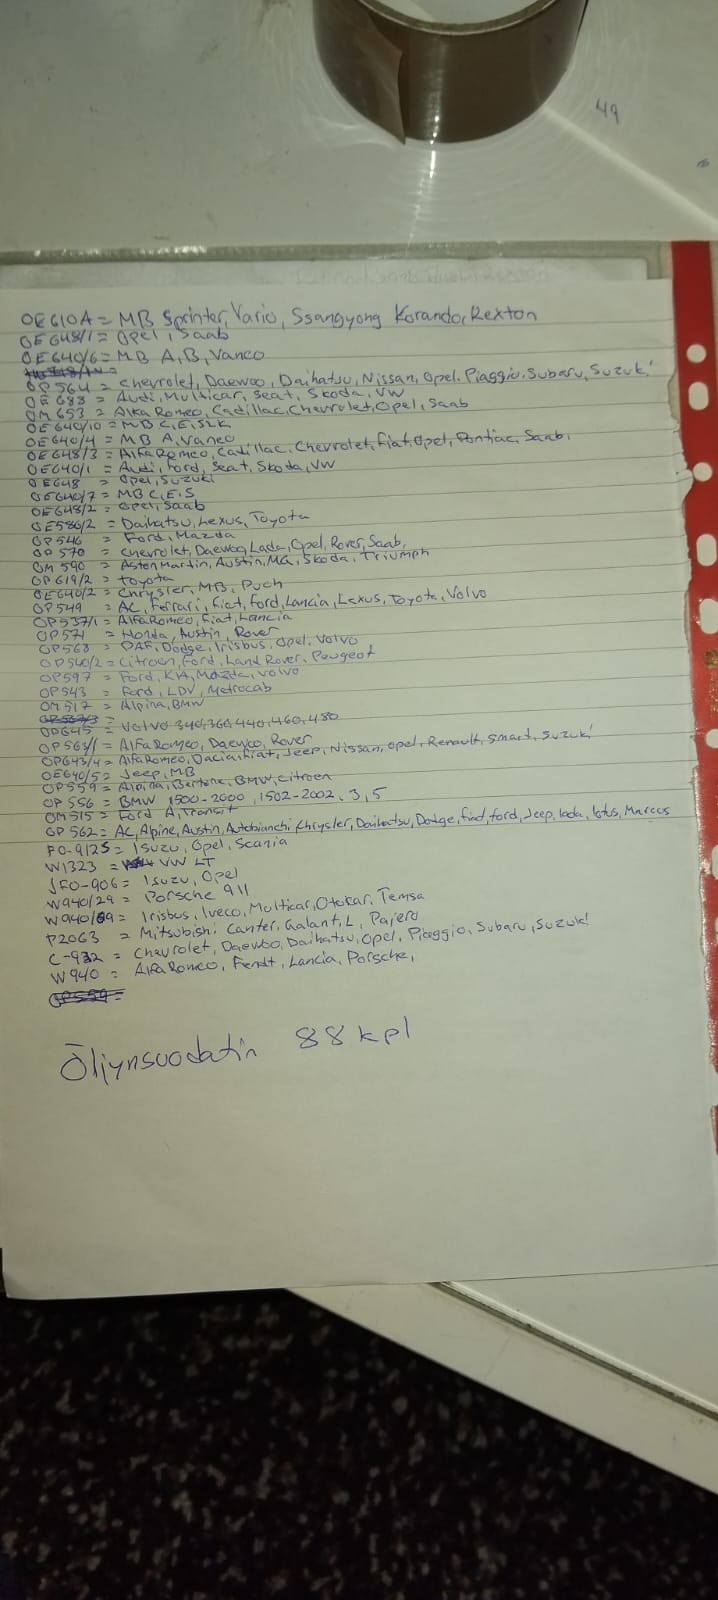 49
OE610A = MB Sprinter, Vario, Ssangyong Korando, Rexton
OE648/1 = Opel, Saab
OE640/6 = MB A, B, Vaneo
OP564 = Chevrolet, Daewoo, Daihatsu, Nissan, Opel. Piaggio, Subaru, Suzuki
OE688 = Audi, Multicar, Seat, Skoda, VW
OM653 = Alka Romeo, Cadillac, Chevrolet, Opel, Saab
OE640/10 = MB C, E, SLK
OE640/4 = MB A, Vaneo
OE648/3 = Alfa Romeo, Cadillac, Chevrolet, Fiat, Opel, Pontiac, Saab,
OE640/1 = Audi, Ford, Seat, Skoda, VW
OE648 = Opel, Suzuki
OE640/7 = MB C, E, S
OE648/2 = Opel, Saab
OE586/2 = Daihatsu, Lexus, Toyota
OP546 = Ford, Mazda
OP570 = Chevrolet, Daewoo, Lada, Opel, Rover, Saab,
OM590 = Aston Martin, Austin, MG, Skoda, Triumph
OP619/2 = Toyota
OE640/2 = Chrysler, MB, Puch
OP549 = AC, Ferrari, Fiat, Ford, Lancia, Lexus, Toyota, Volvo
OP537/1 = Alfa Romeo, Fiat, Lancia
OP571 = Honda, Austin, Rover
OP563 = DAF, Dodge, Irisbus, Opel, Volvo
OP540/2 = Citroen, Ford, Land Rover, Peugeot
OP597 = Ford, KIA, Mazda, Volvo
OP543 = Ford, LDV, Metrocab
OM517 = Alpina, BMW
OP645 = Volvo 340, 360, 440, 460, 480
OP563/1 = Alfa Romeo, Daewoo, Rover
OP643/4 = Alfa Romeo, Dacia, Fiat, Jeep, Nissan, Opel, Renault, Smart, Suzuki
OE640/5 = Jeep, MB
OP559 = Alpina, Bertone, BMW, Citroen
OP556 = BMW 1500-2000, 1502-2002, 3, 5
OM515 = Ford A, Transit
OP562 = AC, Alpine, Austin, Autobianchi, Chrysler, Daihatsu, Dodge, Fiat, Ford, Jeep, Lada, Lotus, Marcos
FO-912S = Isuzu, Opel, Scania
W1323 = VW LT
JFO-906 = Isuzu, Opel
W940/29 = Porsche 911
W940/69 = Irisbus, Iveco, Multicar, Otokar, Temsa
P2063 = Mitsubishi Canter, Galant, L, Pajero
C-932 = Chevrolet, Daewoo, Daihatsu, Opel, Piaggio, Subaru, Suzuki
W940 = Alfa Romeo, Fendt, Lancia, Porsche,
Öljynsuodatin 88 kpl